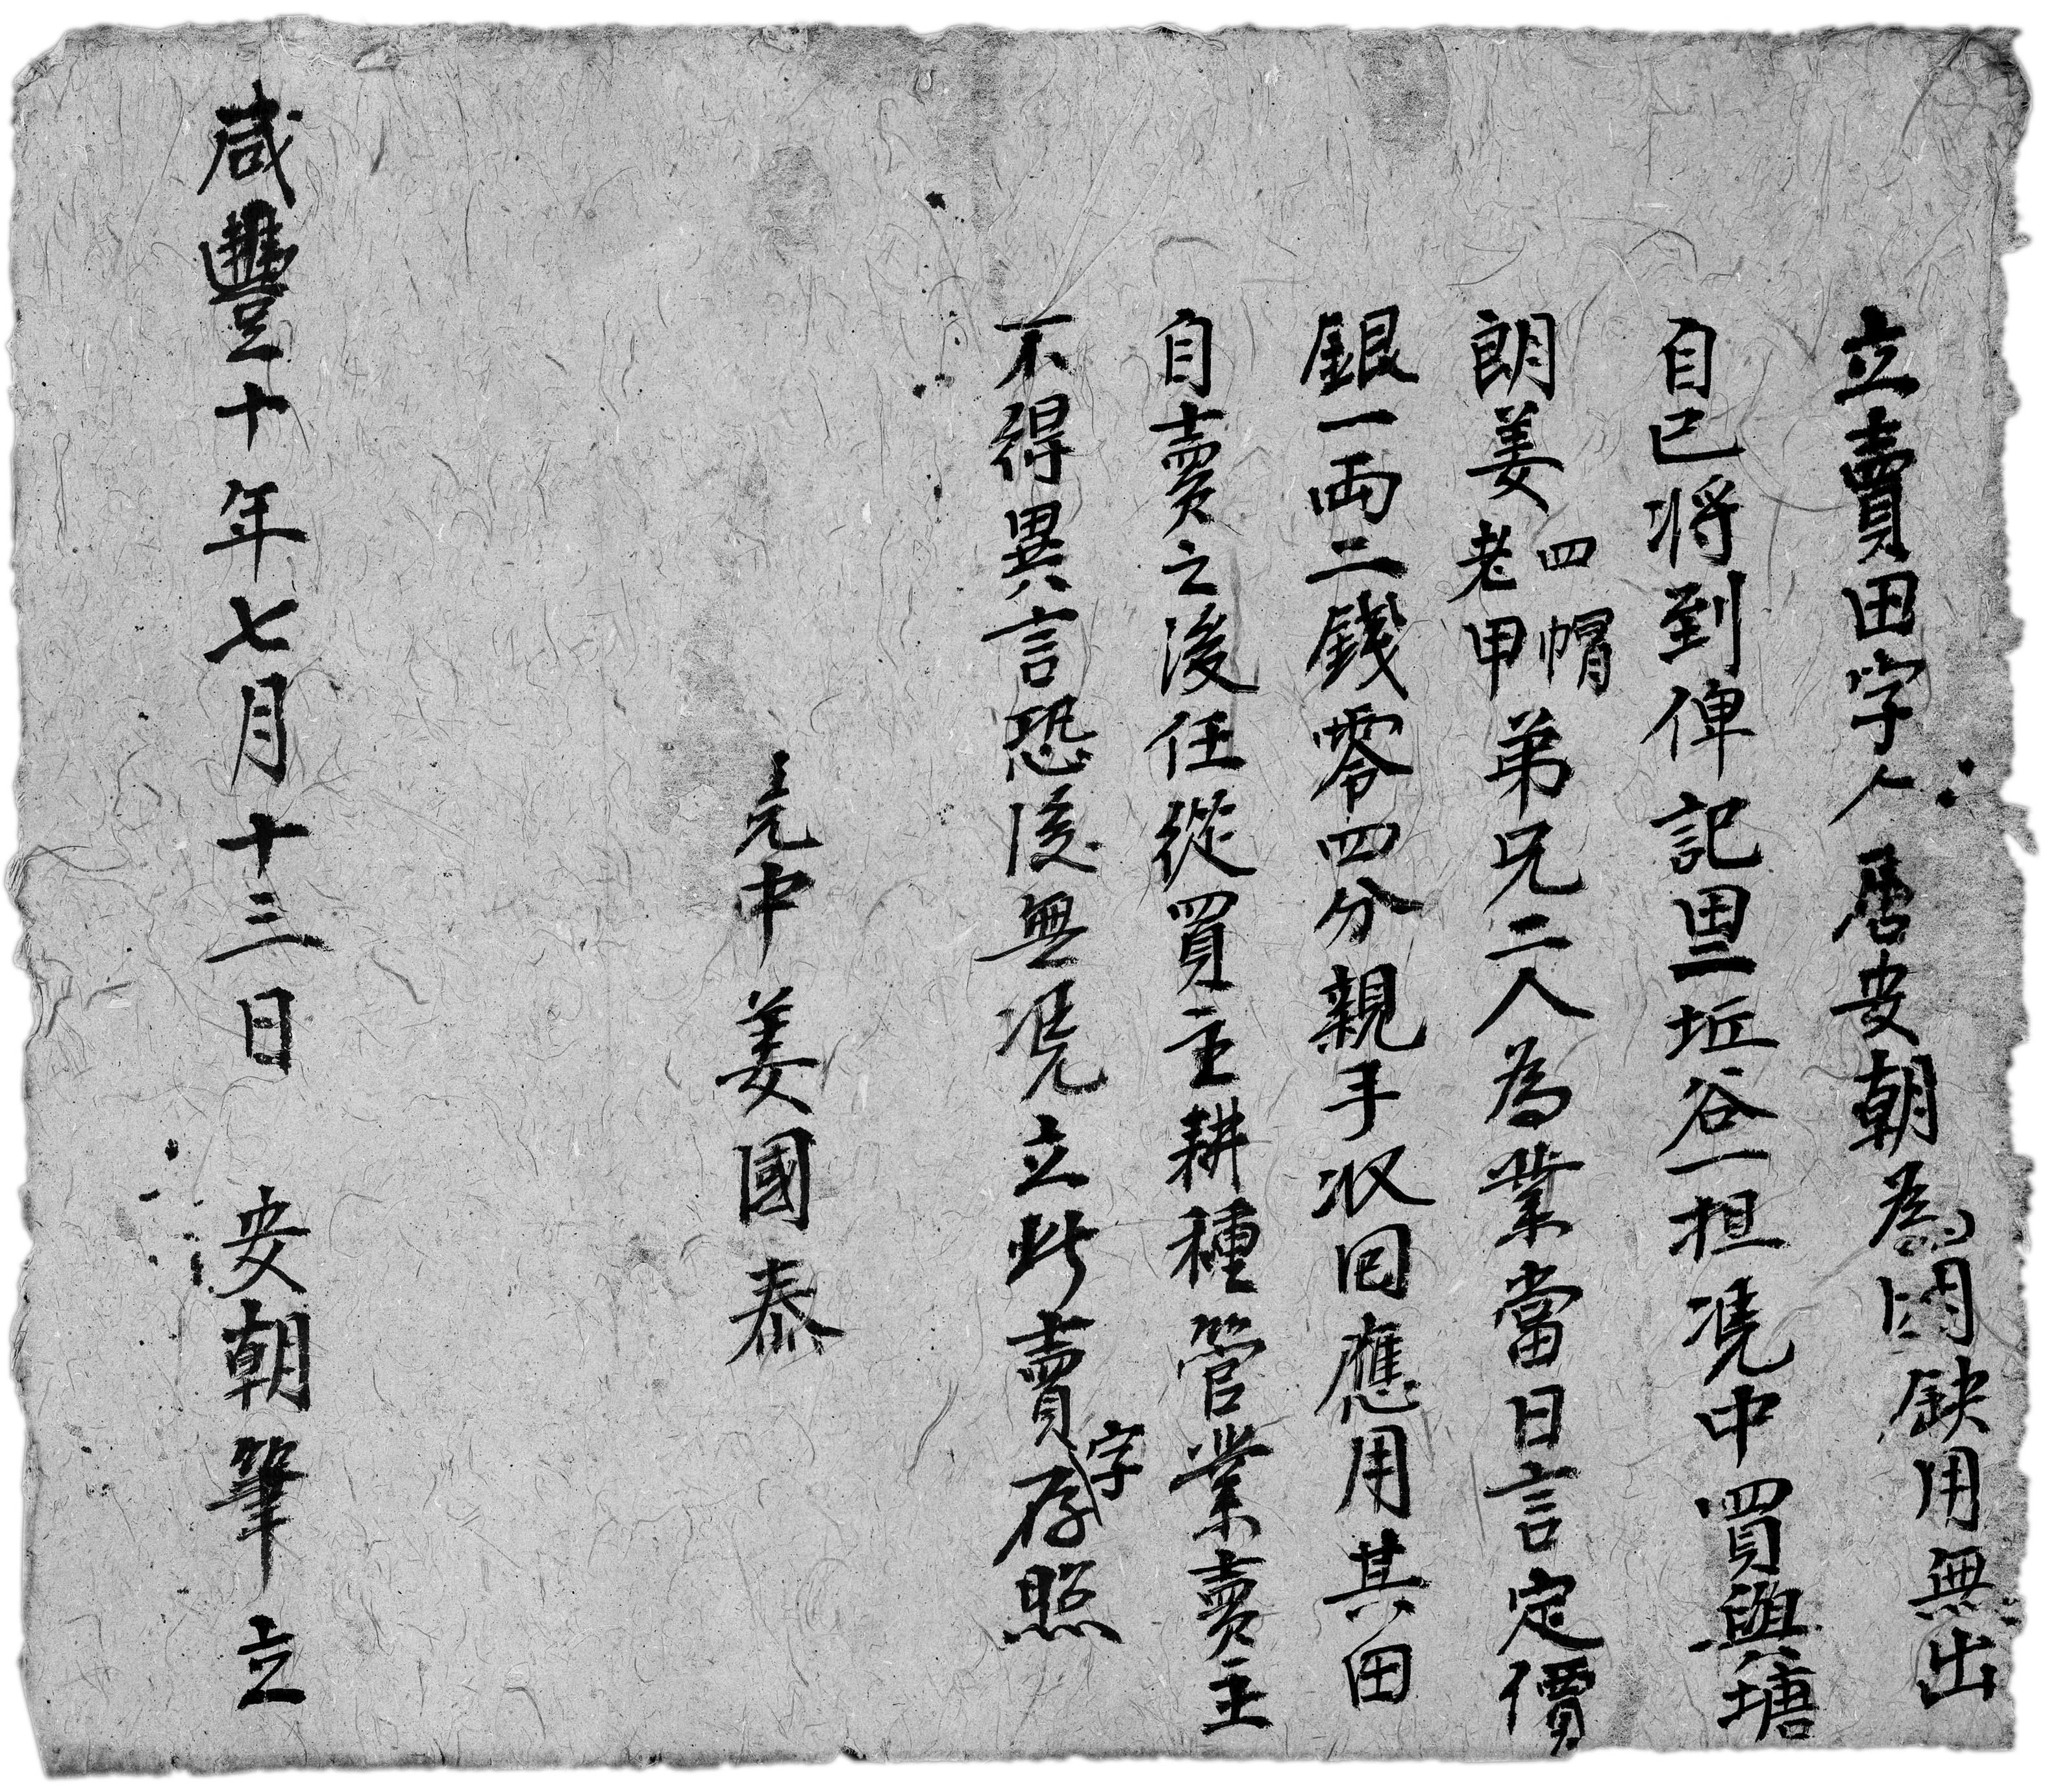 立賣田字人唐安朝為因缺用無出
自己将到俾記田二坵谷一担凴中買與塘
朗姜四帽老甲弟兄二人為業當日言定價
銀一両二錢零四分親手収回應用其田
自賣之後任從買主耕種管業賣主
不得異言恐後無凴立此賣字存照
凴中姜國泰
咸豐十年七月十三日 安朝筆立